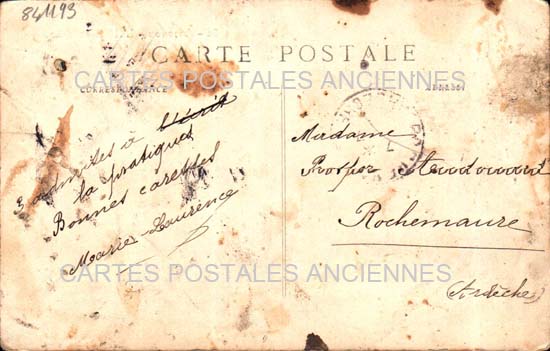 841193
CARTE POSTALE
CARTES POSTALES ANCIENNES
CORRESPONDANCE
à
la pratiques
Bonnes caresses
Marie Laurence
Madame
Prosper
Rochemaure
(Ardèche)
CARTES POSTALES ANCIENNES